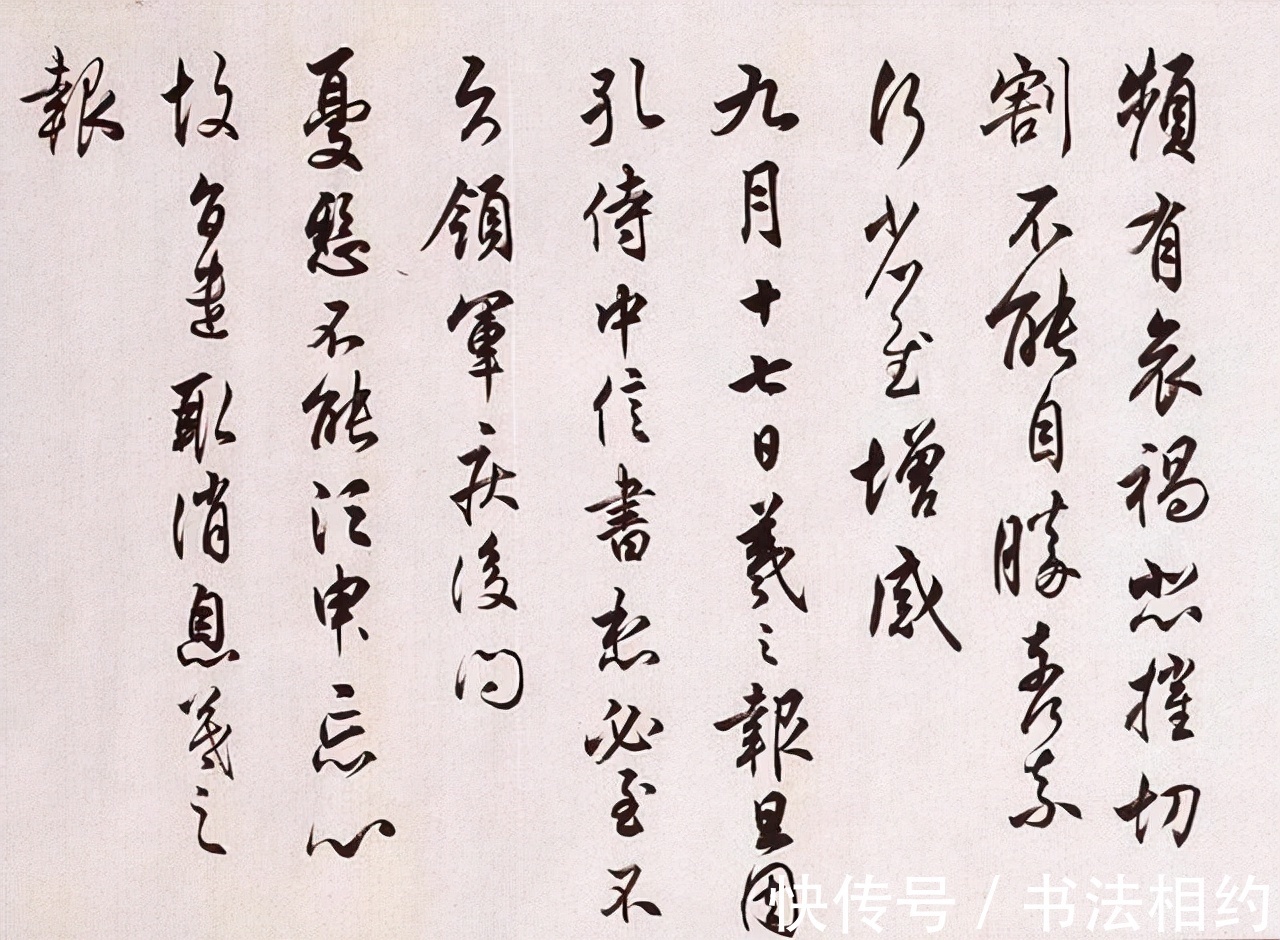 頻有哀禍悲摧切
割不能自勝奈何奈
何省慰增感
九月十七日羲之報且因
孔侍中信書想必至不
知領軍疾後問
憂懸不能須臾忘心
故旨遣取消息羲之
報
快传号 / 书法相约